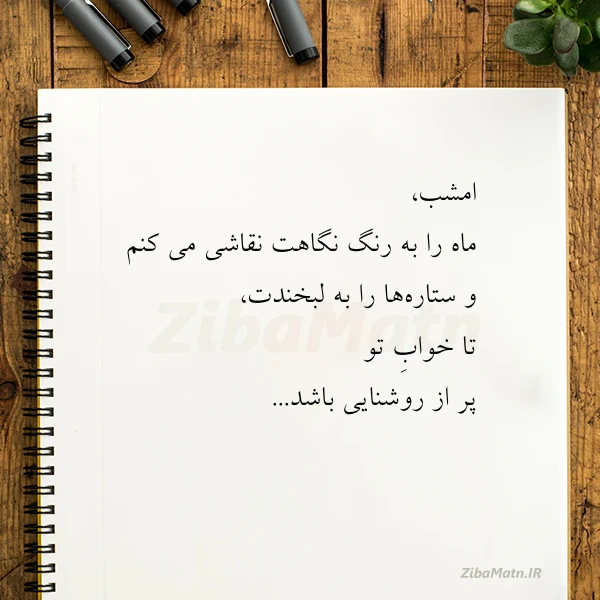 امشب،
ماه را به رنگ نگاهت نقاشی می کنم
و ستاره‌ها را به لبخندت،
تا خوابِ تو
پر از روشنایی باشد...
ZibaMatn
ZibaMatn.IR